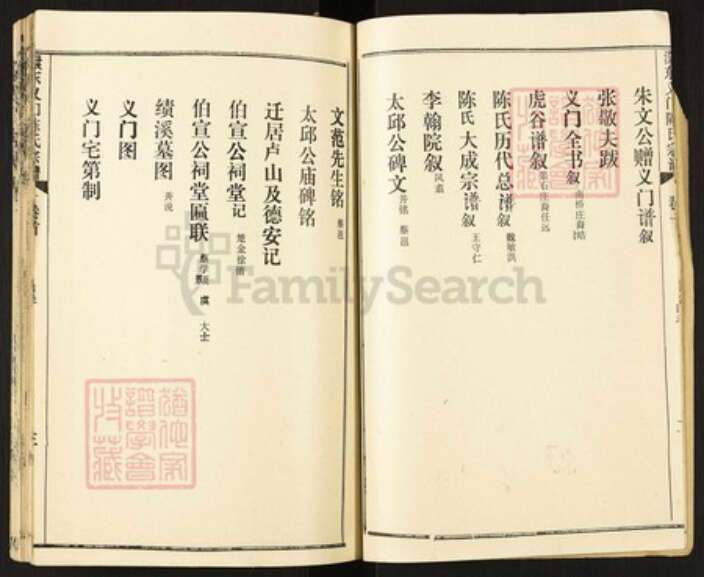 朱文公赠义门谱叙
张敬夫跋
义门全书叙
虎谷谱叙
陈氏历代总谱叙 魏敏洪
陈氏大成宗谱叙 王守仁
李翰院叙
太邱公碑文 并铭 蔡邕
文范先生铭 蔡邕
太邱公庙碑铭
迁居卢山及德安记
伯宣公祠堂记
伯宣公祠堂匾联
绩溪墓图 并说
义门图
义门宅第制
FamilySearch